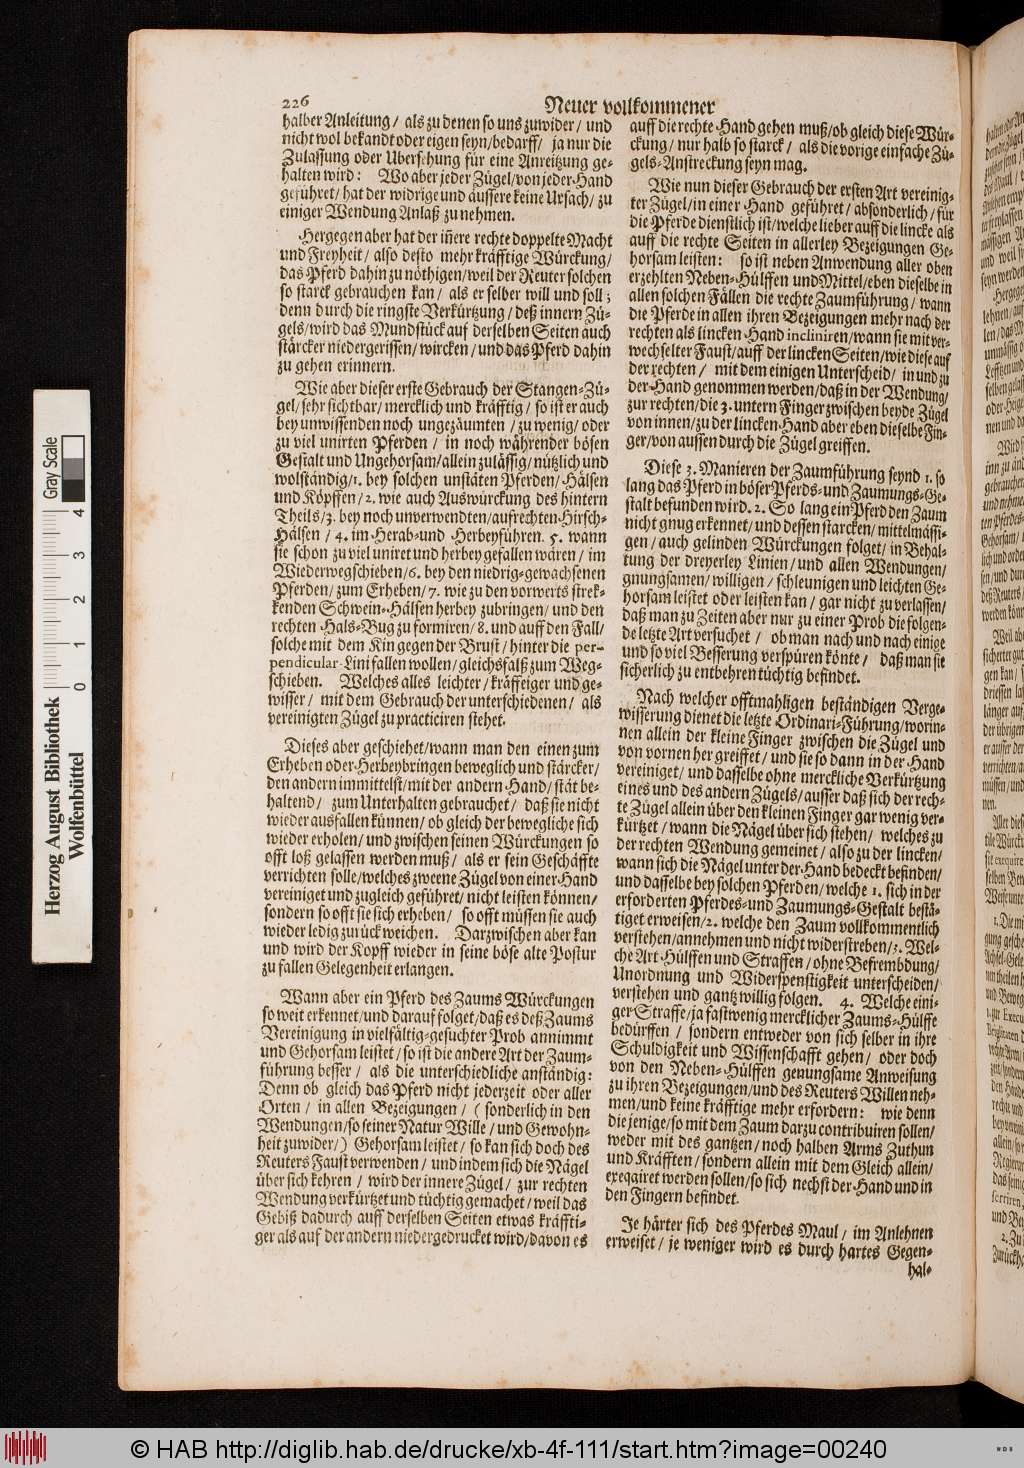 226
Neuer vollkommener
halber Anleitung / als zu denen so uns zuwider / und
nicht wol bekandt oder eigen seyn / bedarff / ja nur die
Zulassung oder Ubersehung für eine Anreitzung ge-
halten wird: Wo aber jeder Zügel / von jeder Hand
geführet / hat der widrige und äussere keine Ursach / zu
einiger Wendung Anlaß zu nehmen.
Hergegen aber hat der iñere rechte doppelte Macht
und Freyheit / also desto mehr kräfftige Würckung /
das Pferd dahin zu nöthigen / weil der Reuter solchen
so starck gebrauchen kan / als er selber will und soll;
denn durch die ringste Verkürtzung / deß innern Zü-
gels / wird das Mundstück auf derselben Seiten auch
stärcker niedergerissen / wircken / und das Pferd dahin
zu gehen erinnern.
Wie aber dieser erste Gebrauch der Stangen-Zü-
gel / sehr sichtbar / mercklich und kräfftig / so ist er auch
bey unwissenden noch ungezäumten / zu wenig / oder
zu viel unirten Pferden / in noch währender bösen
Gestalt und Ungehorsam / allein zulässig / nützlich und
wolständig / 1. bey solchen unstäten Pferden / Hälsen
und Köpffen / 2. wie auch Auswürckung des hintern
Theils / 3. bey noch unverwendten / aufrechten Hirsch-
Hälsen / 4. im Herab- und Herbeyführen. 5. wann
sie schon zu viel uniret und herbey gefallen wären / im
Wiederwegschieben / 6. bey den niedrig-gewachsenen
Pferden / zum Erheben / 7. wie zu den vorwerts strek-
kenden Schwein-Hälsen herbey zubringen / und den
rechten Hals-Bug zu formiren / 8. und auff den Fall /
solche mit dem Kin gegen der Brust / hinter die per-
pendicular-Lini fallen wollen / gleichsfalß zum Weg-
schieben. Welches alles leichter / kräffeiger und ge-
wisser / mit dem Gebrauch der unterschiedenen / als
vereinigten Zügel zu practiciren stehet.
Dieses aber geschiehet / wann man den einen zum
Erheben oder Herbeybringen beweglich und stärcker /
den andern inmittelst / mit der andern Hand / stät be-
haltend / zum Unterhalten gebrauchet / daß sie nicht
wieder ausfallen künnen / ob gleich der bewegliche sich
wieder erholen / und zwischen seinen Würckungen so
offt loß gelassen werden muß / als er sein Geschäffte
verrichten solle / welches zweene Zügel von einer Hand
vereiniget und zugleich geführet / nicht leisten können /
sondern so offt sie sich erheben / so offt müssen sie auch
wieder ledig zurück weichen. Darzwischen aber kan
und wird der Kopff wieder in seine böse alte Postur
zu fallen Gelegenheit erlangen.
Wann aber ein Pferd des Zaums Würckungen
so weit erkennet / und darauf folget / daß es deß Zaums
Vereinigung in vielfältig-gesuchter Prob annimmt
und Gehorsam leistet / so ist die andere Art der Zaum-
führung besser / als die unterschiedliche anständig:
Denn ob gleich das Pferd nicht jederzeit oder aller
Orten / in allen Bezeigungen / (sonderlich in den
Wendungen / so seiner Natur Wille / und Gewohn-
heit zuwider /) Gehorsam leistet / so kan sich doch des
Reuters Faust verwenden / und indem sich die Nägel
über sich kehren / wird der innere Zügel / zur rechten
Wendung verkürtzet und tüchtig gemachet / weil das
Gebiß dadurch auff derselben Seiten etwas kräffti-
ger als auf der andern niedergedrucket wird / davon es
auff die rechte Hand gehen muß / ob gleich diese Wür-
ckung / nur halb so starck / als die vorige einfache Zü-
gels-Anstreckung seyn mag.
Wie nun dieser Gebrauch der ersten Art vereinig-
ter Zügel / in einer Hand geführet / absonderlich / für
die Pferde dienstlich ist / welche lieber auff die lincke als
auff die rechte Seiten in allerley Bezeigungen Ge-
horsam leisten: so ist neben Anwendung aller oben
erzehlten Neben-Hülffen und Mittel / eben dieselbe in
allen solchen Fällen die rechte Zaumführung / wann
die Pferde in allen ihren Bezeigungen mehr nach der
rechten als lincken Hand incliniren / wann sie mit ver-
wechselter Faust / auff der lincken Seiten / wie diese auf
der rechten / mit dem einigen Unterscheid / in und zu
der Hand genommen werden / daß in der Wendung /
zur rechten / die 3. untern Finger zwischen beyde Zügel
von innen / zu der lincken Hand aber eben dieselbe Fin-
ger / von aussen durch die Zügel greiffen.
Diese 3. Manieren der Zaumführung seynd 1. so
lang das Pferd in böser Pferds- und Zaumungs-Ge-
stalt befunden wird. 2. So lang ein Pferd den Zaum
nicht gnug erkennet / und dessen starcken / mittelmässi-
gen / auch gelinden Würckungen folget / in Behal-
tung der dreyerley Linien / und allen Wendungen /
gnungsamen / willigen / schleunigen und leichten Ge-
horsam leistet oder leisten kan / gar nicht zu verlassen /
daß man zu Zeiten aber nur zu einer Prob die folgen-
de letzte Art versuchet / ob man nach und nach einige
und so viel Besserung verspüren könte / daß man sie
sicherlich zu entbehren tüchtig befindet.
Nach welcher offtmahligen beständigen Verge-
wisserung dienet die letzte Ordinari-Führung / worin-
nen allein der kleine Finger zwischen die Zügel und
von vornen her greiffet / und sie so dann in der Hand
vereiniget / und dasselbe ohne merckliche Verkürtzung
eines und des andern Zügels / ausser daß sich der rech-
te Zügel allein über den kleinen Finger gar wenig ver-
kürtzet / wann die Nägel über sich stehen / welches zu
der rechten Wendung gemeinet / also zu der lincken /
wann sich die Nägel unter der Hand bedeckt befinden /
und dasselbe bey solchen Pferden / welche 1. sich in der
erforderten Pferdes- und Zaumungs-Gestalt bestä-
tiget erweisen / 2. welche den Zaum vollkommentlich
verstehen / annehmen und nicht widerstreben / 3. Wel-
che Art Hülffen und Straffen / ohne Befrembdung /
Unordnung und Widerspenstigkeit unterscheiden /
verstehen und gantz willig folgen. 4. Welche eini-
ger Straffe / ja fast wenig mercklicher Zaums-Hülffe
bedürffen / sondern entweder von sich selber in ihre
Schuldigkeit und Wissenschafft gehen / oder doch
von den Neben-Hülffen genungsame Anweisung
zu ihren Bezeigungen / und des Reuters Willen neh-
men / und keine kräfftige mehr erfordern: wie denn
die jenige / so mit dem Zaum darzu contribuiren sollen /
weder mit des gantzen / noch halben Arms Zuthun
und Kräfften / sondern allein mit dem Gleich allein /
exeqairet werden sollen / so sich nechst der Hand und in
den Fingern befindet.
Je härter sich des Pferdes Maul / im Anlehnen
erweiset / je weniger wird es durch hartes Gegen-
hal-
Herzog August Bibliothek
Wolfenbüttel
0 1 2 3 4
Gray Scale
© HAB http://diglib.hab.de/drucke/xb-4f-111/start.htm?image=00240